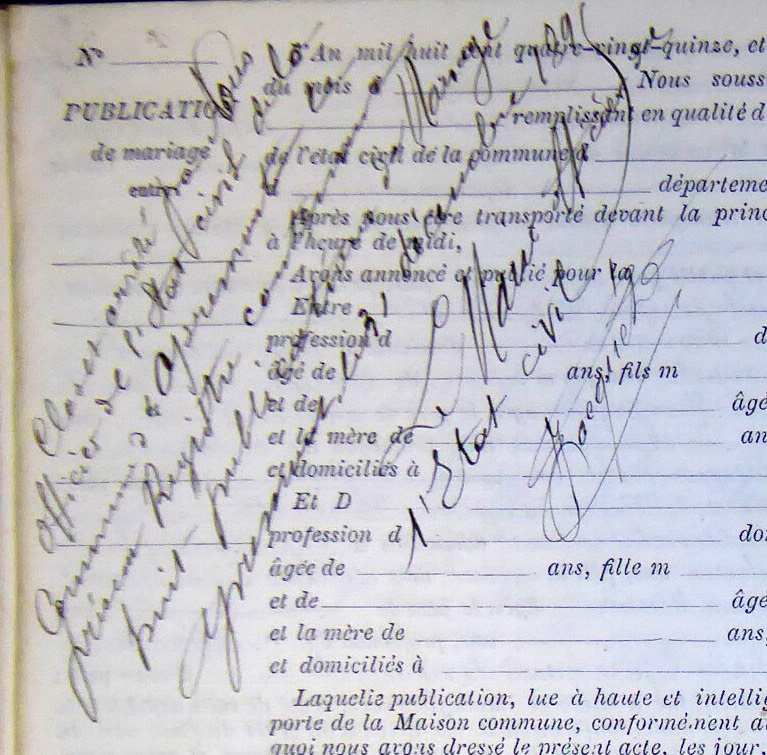 N°
L'An mil huit cent quatre-vingt-quinze, et
du mois d Nous souss
PUBLICATION
remplissant en qualité d
de mariage
de l'état civil de la commune d
entre
d départeme
Après nous être transporté devant la princ
à l'heure de midi,
Avons annoncé et publié pour la
Entre
profession d d
âgé de ans, fils m
et de âgé
et la mère de an
et domiciliés à
Et D
profession d do
âgée de ans, fille m
et de âgé
et la mère de ans,
et domiciliés à
Laquelle publication, lue à haute et intellig
porte de la Maison commune, conformément a
quoi nous avons dressé le présent acte, les jour,
Clos et arrêté par nous
Officier de l'Etat civil de la
Commune d'Apremont le
Registre
trente un décembre 189
Le Maire Officier
l'Etat civil